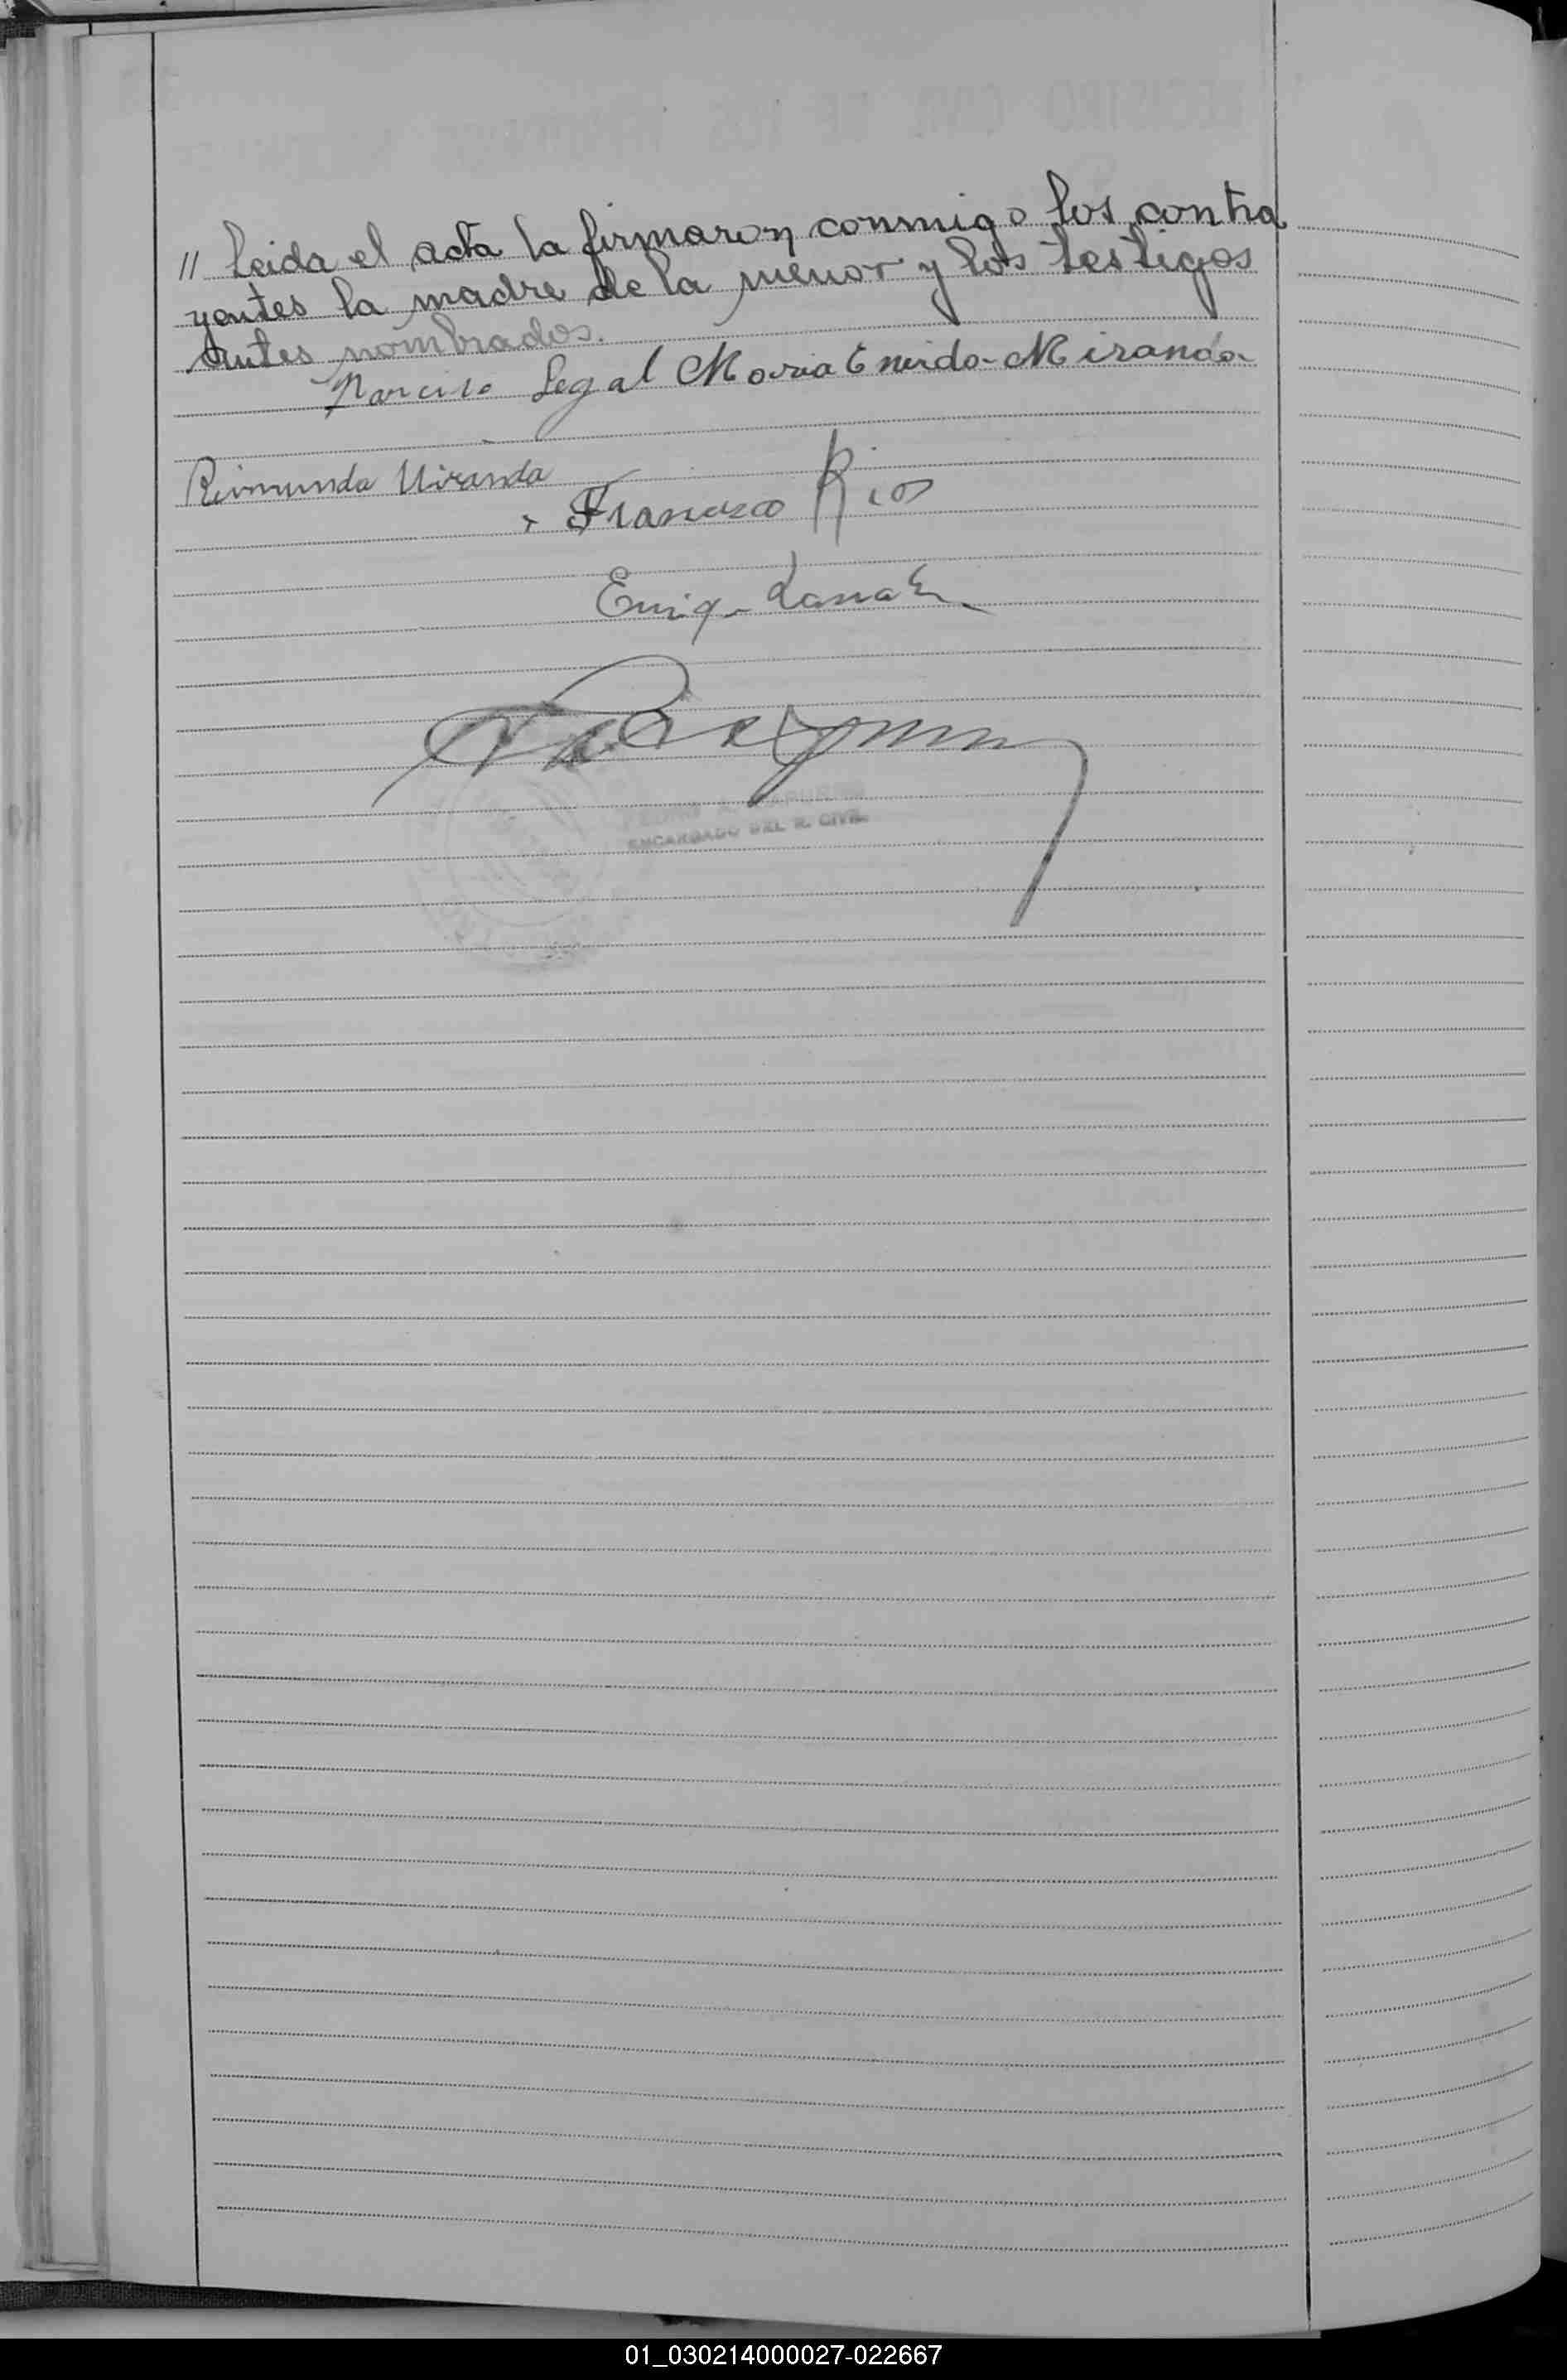 // Leida el acta la firmaron conmigo los contra
yentes la madre de la menor y los testigos
antes nombrados.
Narciso Legal Maria Eneida Miranda
Reimunda Miranda
Francisco Rios
ENCARGADO DEL R. CIVIL
01_030214000027-022667